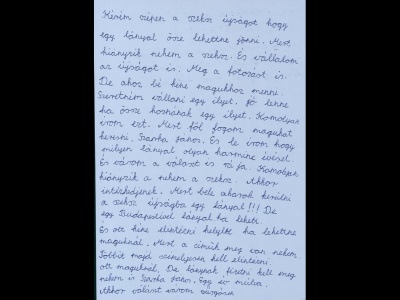 Kérem szépen a szeksz újságot hogy
egy lányal össe lehettne jönni. Mert
hiányzik nekem a szeksz. És vállalom
az újságot is. Meg a fotózást is.
De ahoz be kéne magukhoz menni.
Szeretném vállani egy ilyet. Jó lenne
ha össze hoznának egy ilyet. Komolyan
irom ezt. Mert föl fogom magukat
keresni. Szarka János. És le irom hogy
milyen lányal olyan harminc évesel.
És várom a választ is rá ja. Komolyan
hiányzik a nekem a szeksz. Akkor
intézkedjenek. Mert bele akarok kerülni
a szeksz újságba egy lányal!!! De
egy Budapestivel lányal ha lehett.
És ott kéne elintézni helybe ha lehettne
maguknál. Mert a címük meg van nekem.
Többit majd személyesen kell elintézni.
ott maguknál. De lánynak fizetni kell meg
nekem is Szarka János. Egy év múlva.
Akkor választ várom sürgősen